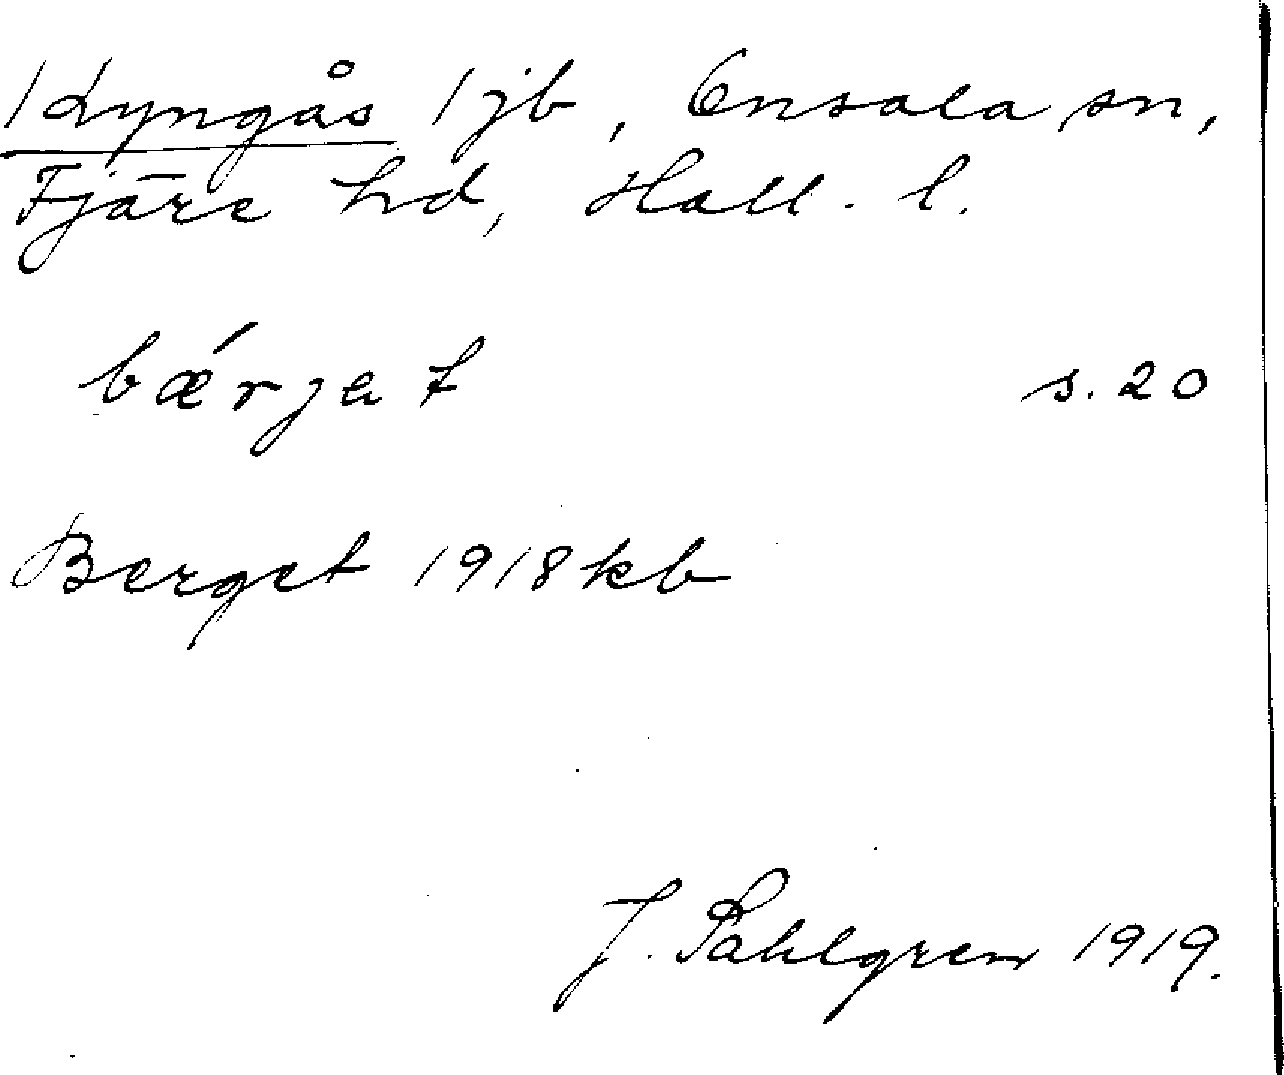 1 Lyngås 1 jb, Onsala sn,
Fjäre hd, Hall. l.
bǽrjat s. 20
Berget 1918 kb
J. Sahlgren 1919.